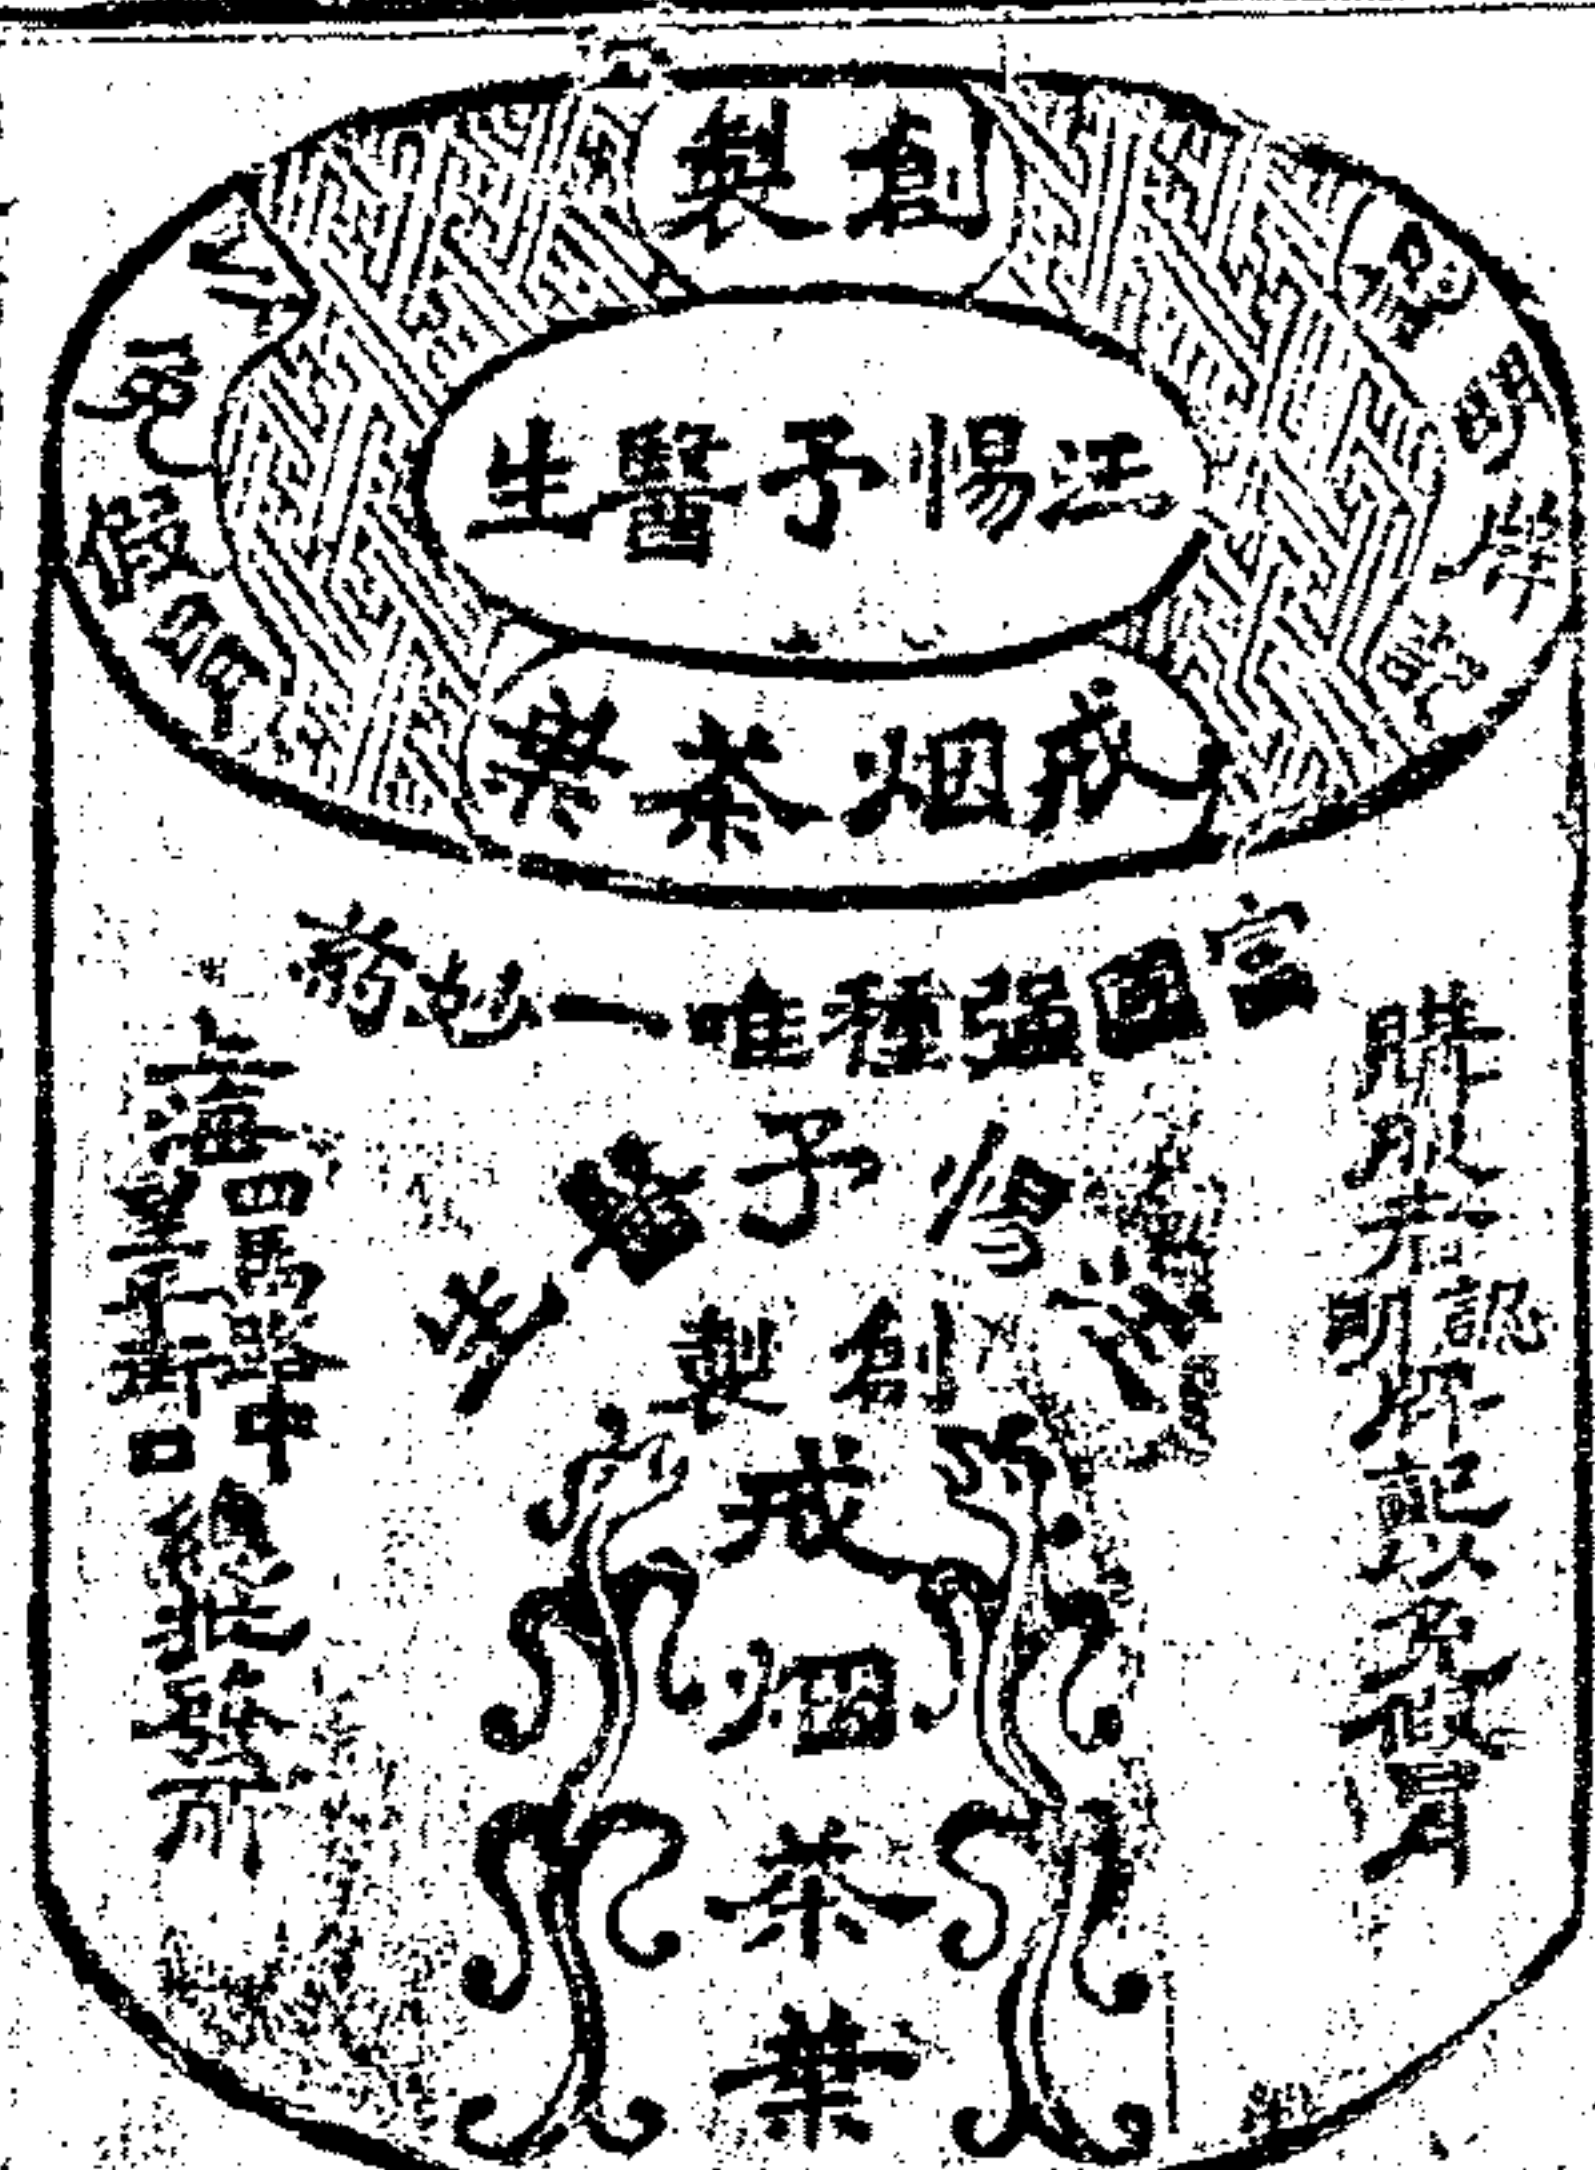 創製
認明牌記
以免假冒
汪惕予醫生
戒烟茶葉
富國强種唯一妙葯
購服者認明牌記以免假冒
汪惕予醫生
創製
戒烟茶葉
上海四馬路中
望平街口
總批發所